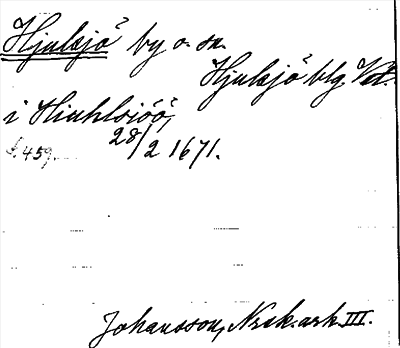 Hjulsjö by o. sn.
Hjulsjö blg Vstm.
i Hiuhlsiöö,
s. 459. 28/2 1671.
Johansson, Nrsk. ark. III.